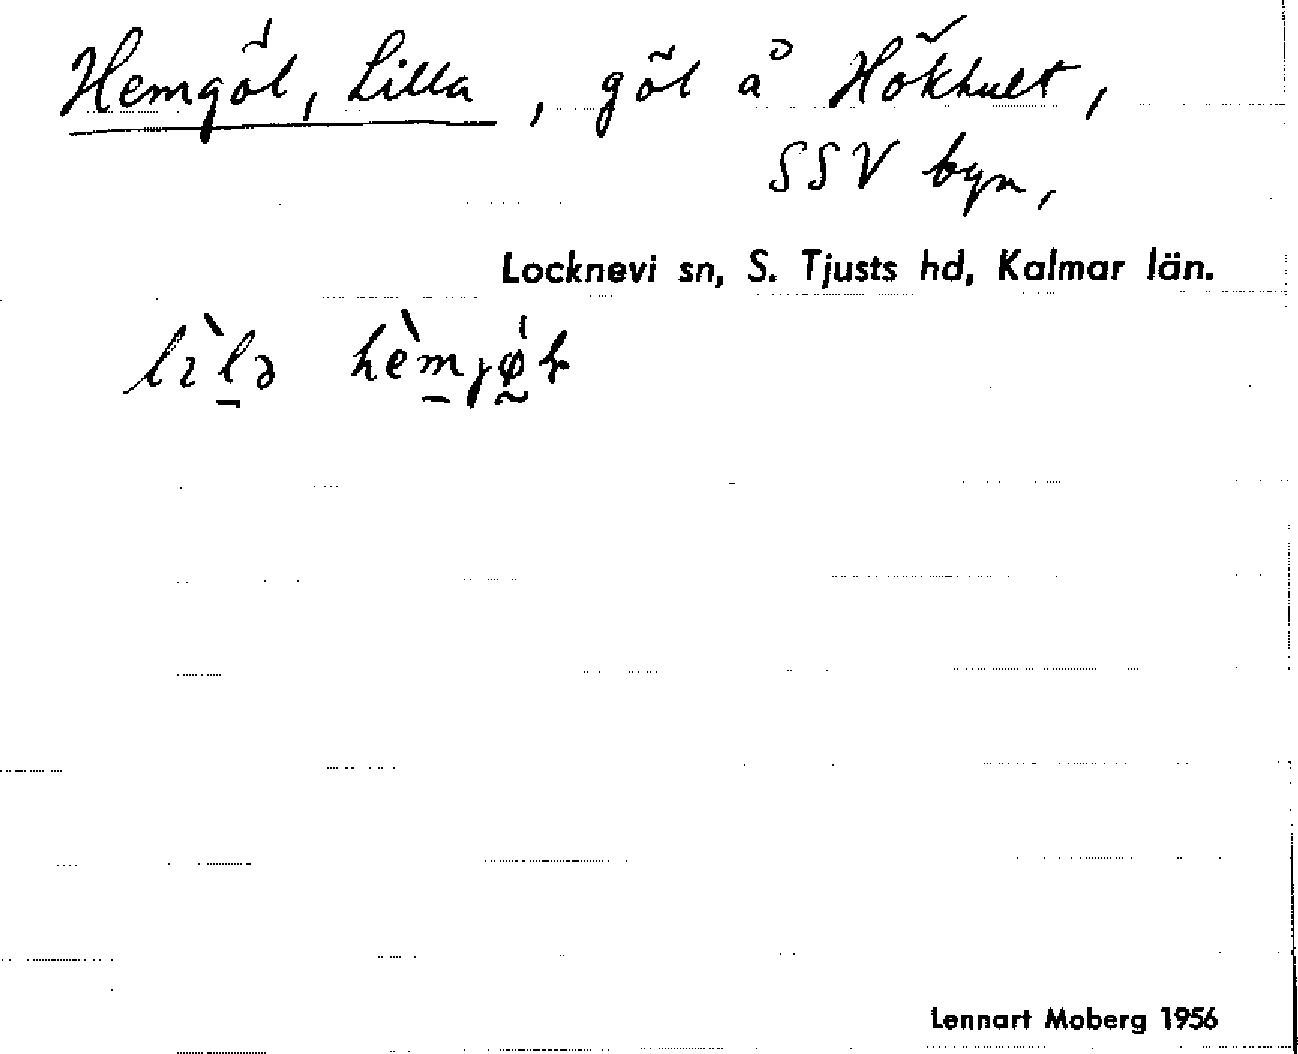 Hemgöl, Lilla, göl å Hökhult,
SSV byn,
Locknevi sn, S. Tjusts hd, Kalmar län.
Lennart Moberg 1956